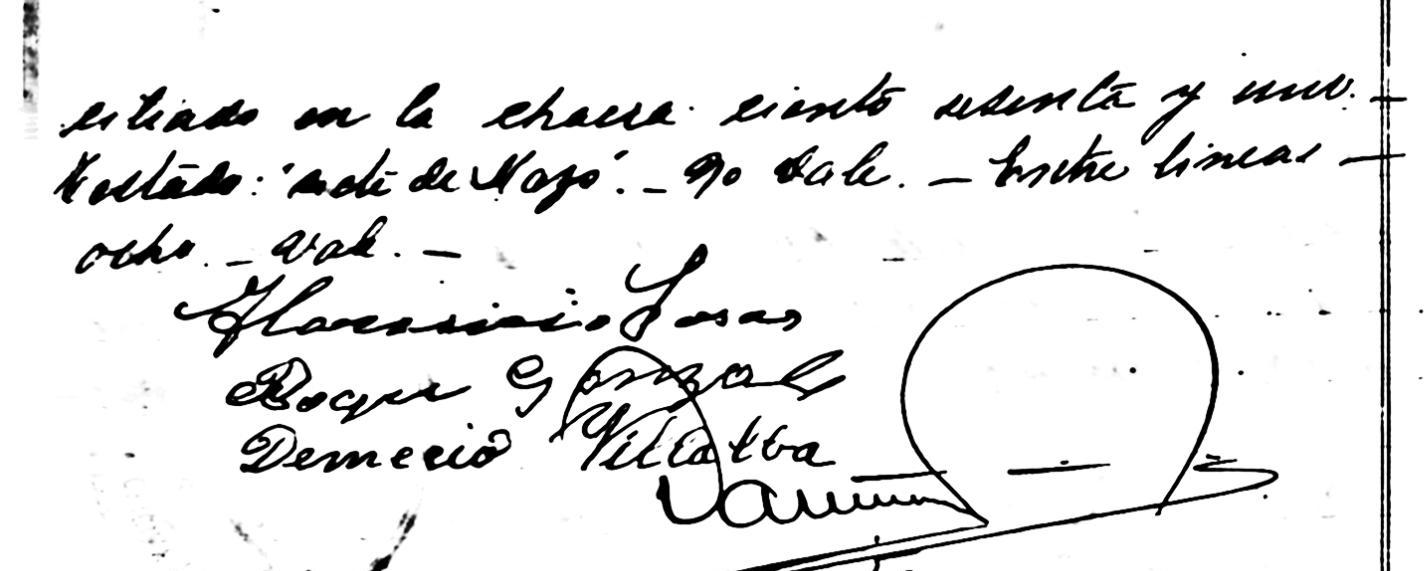 citiado en la chacra ciento sesenta y uno. —
Testado: "siete de Mayo". — No Vale. — Entre lineas —
ocho. — Vale. —
Florencio Sosa
Roque Gonzalez
Demecio Villalba